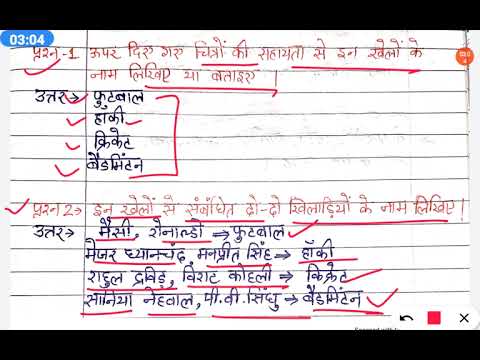 03:04
प्रश्न-1 ऊपर दिए गए चित्रों की सहायता से इन खेलों के
नाम लिखिए या बताइए ।
उत्तर→ फुटबाल
हाकी
क्रिकेट
बैडमिंटन
प्रश्न 2→ इन खेलों से संबंधित दो-दो खिलाड़ियों के नाम लिखिए।
उत्तर→ मैसी, रोनाल्डो ⇒ फुटबाल
मेजर ध्यानचंद, मनप्रीत सिंह ⇒ हॉकी
राहुल द्रविड़, विराट कोहली ⇒ क्रिकेट
सानिया नेहवाल, पी.वी.सिंधु ⇒ बैडमिंटन